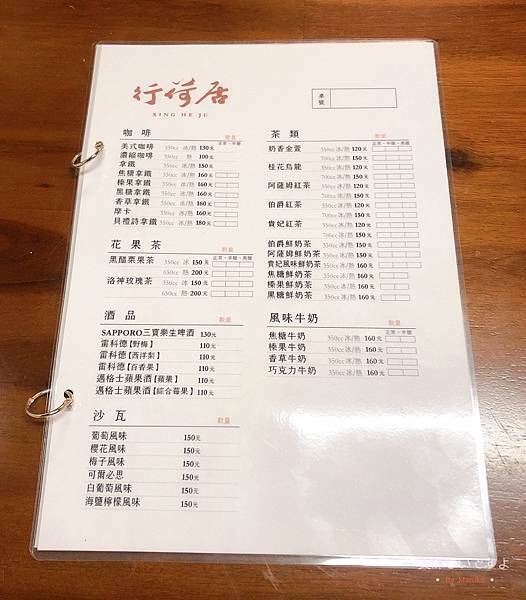 行荷居
XING HE JU
桌號
咖啡 數量
正常・半糖
美式咖啡 350cc 冰/熱 130元
濃縮咖啡 熱 100元
拿鐵 350cc 冰/熱 150元
焦糖拿鐵 350cc 冰/熱 160元
榛果拿鐵 350cc 冰/熱 160元
黑糖拿鐵 350cc 冰/熱 160元
香草拿鐵 350cc 冰/熱 160元
摩卡 350cc 冰/熱 160元
貝禮詩拿鐵 350cc 冰/熱 180元
花果茶 數量
正常・半糖・無糖
黑醋栗果茶 350cc 冰 150元
650cc 熱 200元
洛神玫瑰茶 350cc 冰 150元
650cc 熱 200元
酒品 數量
SAPPORO三寶樂生啤酒 130元
雷科德【對梅】 110元
雷科德【西洋梨】 110元
雷科德【百香果】 110元
邁格士蘋果酒【蘋果】 110元
邁格士蘋果酒【綜合莓果】 110元
沙瓦 數量
葡萄風味 150元
櫻花風味 150元
梅子風味 150元
可爾必思 150元
白葡萄風味 150元
海鹽檸檬風味 150元
茶類 數量
正常・半糖・無糖
奶香金萱 350cc 冰/熱 120元
700cc 冰/熱 150元
桂花烏龍 350cc 冰/熱 120元
700cc 冰/熱 150元
阿薩姆紅茶 350cc 冰/熱 120元
700cc 冰/熱 150元
伯爵紅茶 350cc 冰/熱 120元
700cc 冰/熱 150元
貴妃紅茶 350cc 冰/熱 120元
700cc 冰/熱 150元
伯爵鮮奶茶 350cc 冰/熱 150元
阿薩姆鮮奶茶 350cc 冰/熱 150元
貴妃風味鮮奶茶 350cc 冰/熱 160元
焦糖鮮奶茶 350cc 冰/熱 160元
榛果鮮奶茶 350cc 冰/熱 160元
黑糖鮮奶茶 350cc 冰/熱 160元
風味牛奶 數量
焦糖牛奶 350cc 冰/熱 160元
榛果牛奶 350cc 冰/熱 160元
香草牛奶 350cc 冰/熱 160元
巧克力牛奶 350cc 冰/熱 160元